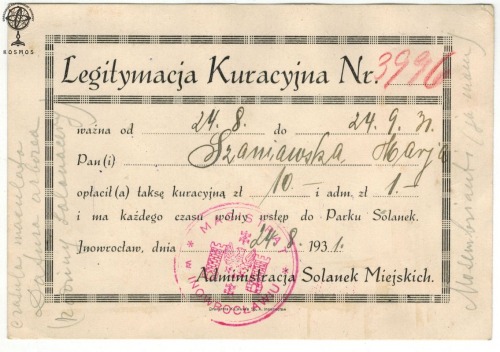 KOSMOS
Legitymacja Kuracyjna Nr. 3996
ważna od 24.8. do 24.9.31.
Pan(i) Szaniawska Marja
opłacił(a) taksę kuracyjną zł 10.- i adm. zł 1.-
i ma każdego czasu wolny wstęp do Parku Solanek.
Jnowrocław, dnia 24.8. 1931.
Administracja Solanek Miejskich.
* MAGISTRAT * w INOWROCŁAWIU